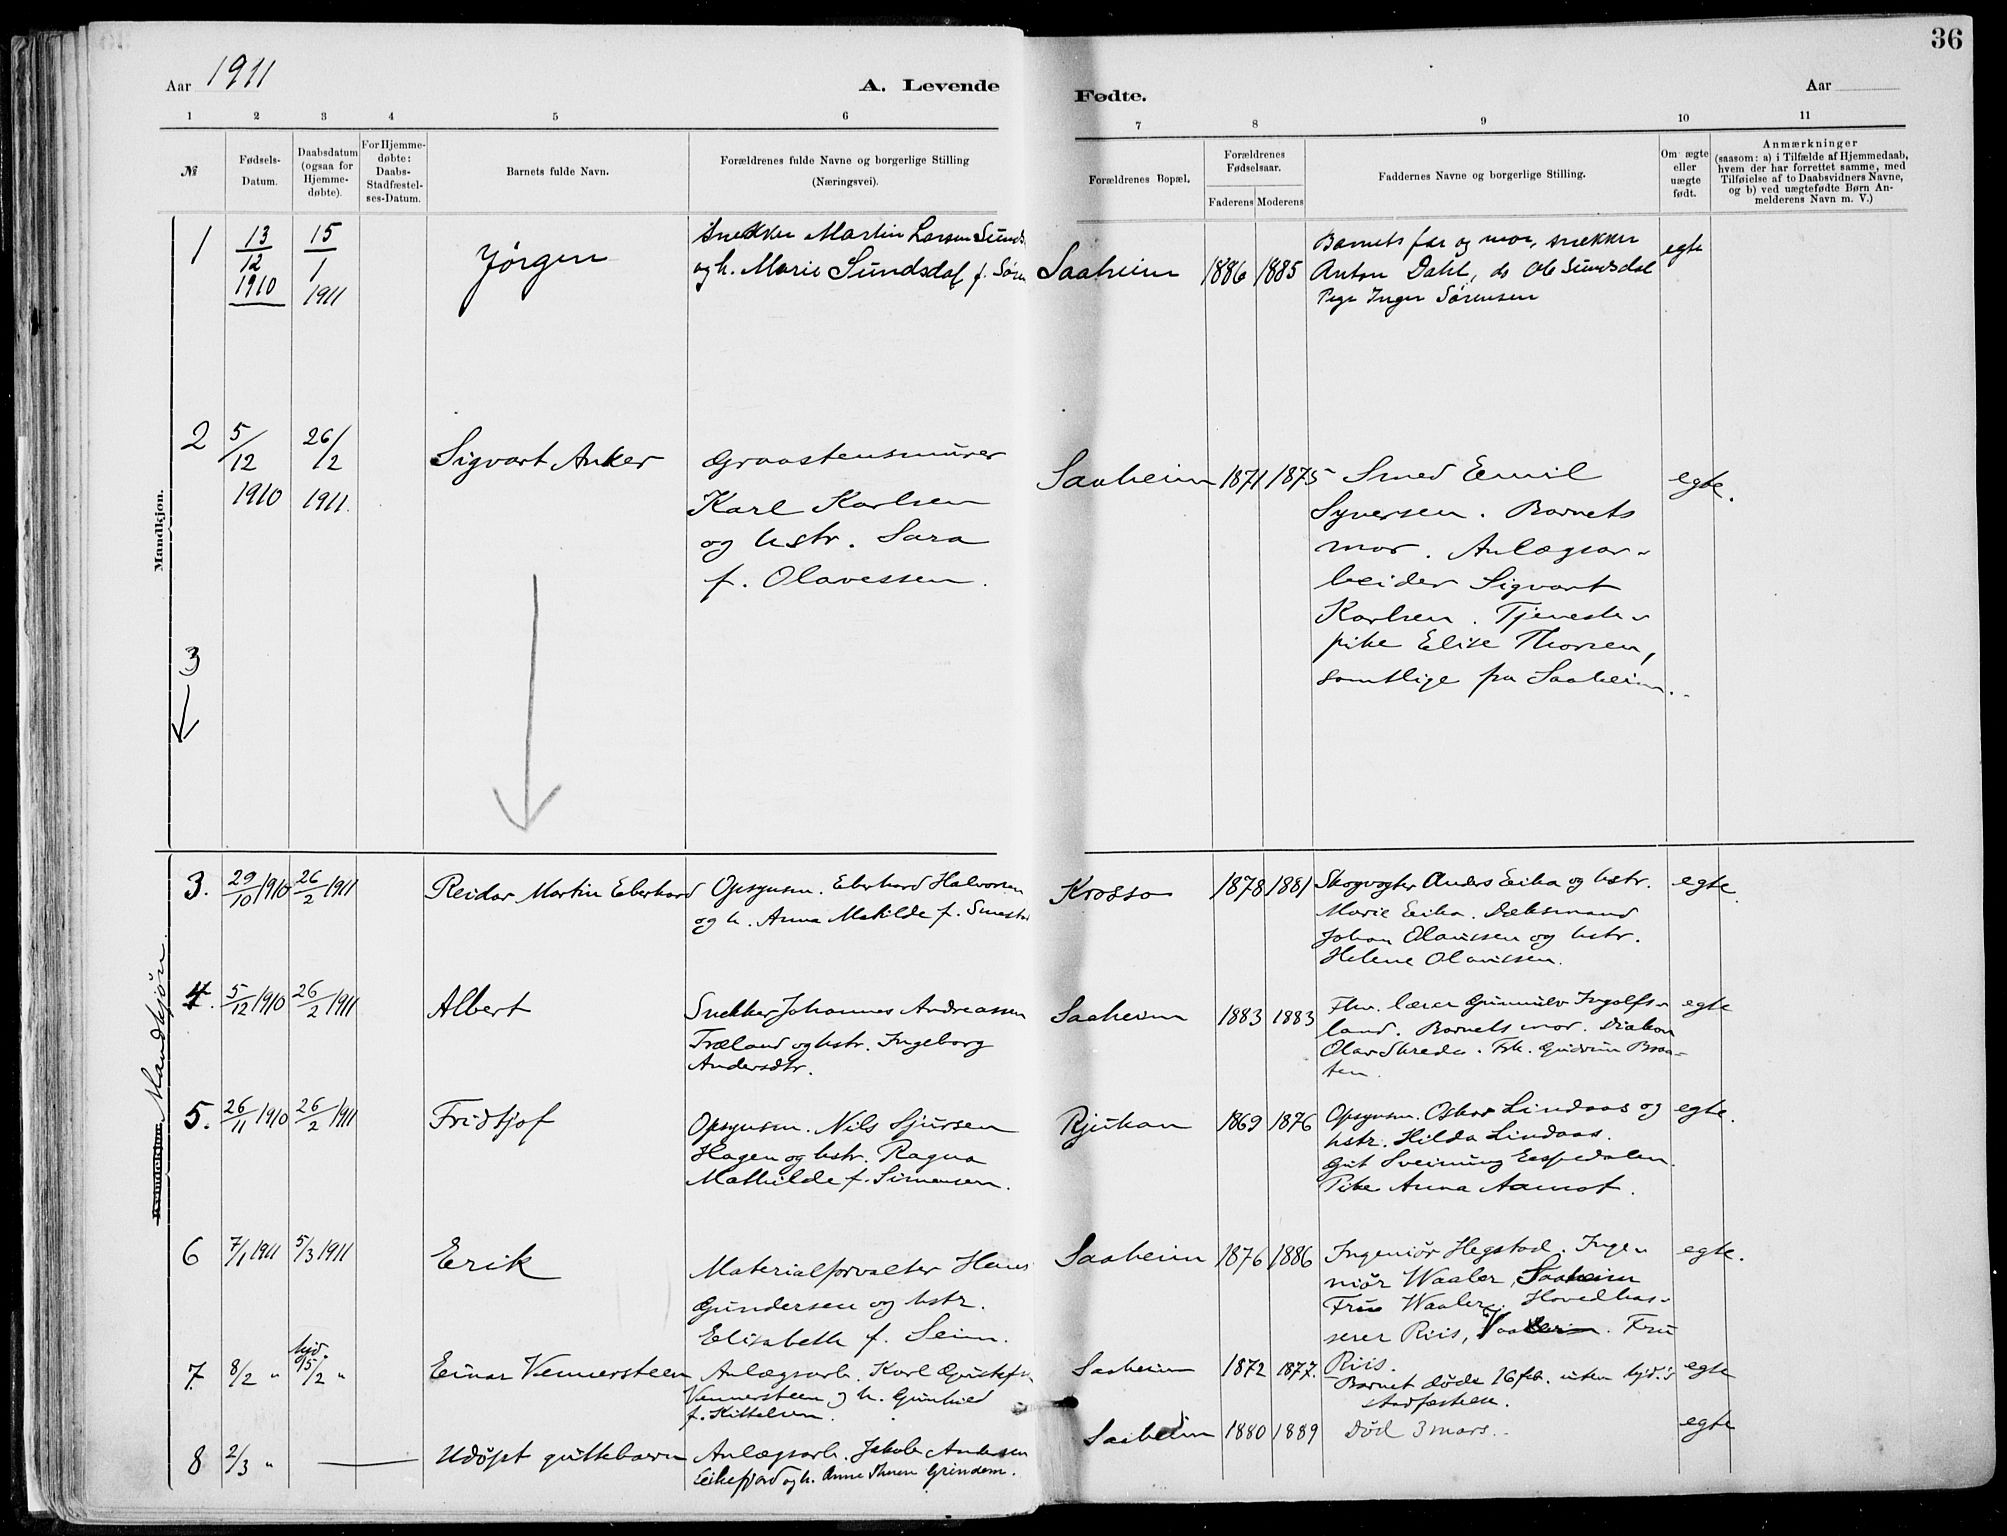 36
Aar 1911
A. Levende
Fødte.
Aar
1 2 3 4 5 6 7 8 9 10 11
№
Fødsels-
Datum.
Daabsdatum
(ogsaa for
Hjemme-
døbte).
For Hjemme-
døbte:
Daabs-
Stadfæstel-
ses-Datum.
Barnets fulde Navn.
Forældrenes fulde Navne og borgerlige Stilling
(Næringsvei).
Forældrenes Bopæl.
Forældrenes
Fødselsaar.
Faderens Moderens
Faddernes Navne og borgerlige Stilling.
Om ægte
eller
uægte
født.
Anmærkninger
(saasom: a) i Tilfælde af Hjemmedaab,
hvem der har forrettet samme, med
Tilføielse af to Daabsvidners Navne,
og b) ved uægtefødte Børn An-
melderens Navn m. V.)
Mandkjøn.
1
13/12 1910
15/1 1911
Jørgen
Snekker Martin Larsen Sunds
og h. Marie Sundsdal f. Søren
Saaheim 1886 1885
Barnets far og mor, snekker
Anton Dahl, do Ole Sundsdal
Pige Inger Sørensen
egte
2
5/12 1910
26/2 1911.
Sigvart Anker
Graastensmurer
Karl Karlsen
og hstr. Sara
f. Olavessen.
Saaheim 1871 1875
Smed Emil
Syversen. Barnets
mor. Anlægsar-
beider Sigvart
Karlsen. Tjeneste-
pike Elise Thorsen,
samtlige fra Saaheim.
egte.
3
Kvindekjøn Mandkjøn.
3. 29/10 1910 26/2 1911
Reidar Martin Eberhard
Opsynsm. Eberhard Halvorsen
og h. Anna Matilde f. Smestad
Krosso 1878 1881
Skogvogter Anders Eika og hstr.
Marie Eika. Dæksmand
Johan Olavesen og hstr.
Helene Olavesen.
egte.
4. 5/12 1910 26/2 1911
Albert
Snekker Johannes Andreassen
Træland og hstr. Ingeborg
Andersdtr.
Saaheim 1883 1883
Fhv. lærer Gunnulv Ingolfs-
land. Barnets mor. Diakon
Olav Skrede. Frk. Gudrun Braa-
ten.
egte
5. 26/11 1910 26/2 1911
Fridtjof
Opsynsm. Nils Sjursen
Hagen og hstr. Ragna
Mathilde f. Simensen.
Rjukan 1869 1876
Opsynsm. Oskar Lindaas og
hstr. Hilda Lindaas.
Gut Sveinung Espedalen.
Pike Anna Aamot.
egte.
6 7/1 1911 5/3 1911
Erik
Materialforvalter Hans
Gundersen og hstr.
Elisabeth f. Seim.
Saaheim 1876 1886
Ingeniør Hegstad. Inge-
niør Waaler, Saaheim
Frue Waaler. Hovedkas-
serer Riis, Fru
Riis.
egte.
7. 8/2 " hjd. 15/2 "
Einar Vennersteen
Anlægsarb. Karl Gustafs
Vennersteen og h. Gunhild
f. Kittelsen.
Saaheim 1872 1877.
Barnet døde 16 feb. uten hjd.'s
stadfæstelse.
egte
8 2/3 "
Udøpt guttebarn
Anlægsarb. Jakob Andersen
Eikefjord og h. Anne Grindem.
Saaheim 1880 1889
Død 3 mars.
egte